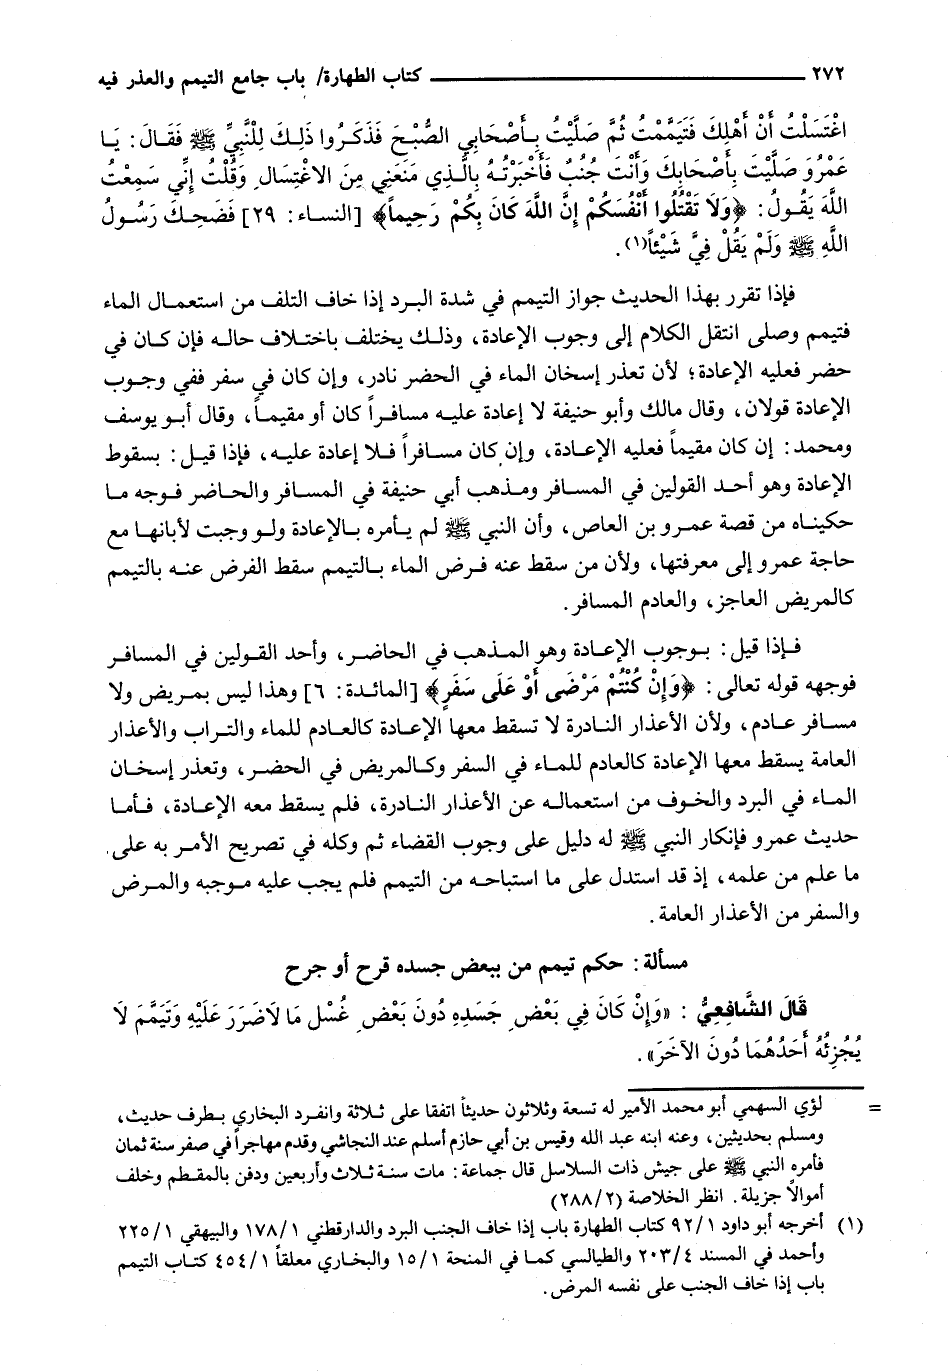 ٢٧٢ ــــــــــــــــــــــــــــــــ كتاب الطهارة/ باب جامع التيمم والعذر فيه
اغْتَسَلْتُ أَنْ أَهْلِكَ فَتَيَمَّمْتُ ثُمَّ صَلَّيْتُ بِأَصْحَابِي الصُّبْحَ فَذَكَرُوا ذَلِكَ لِلْنَّبِيِّ ﷺ فَقَالَ: يَا
عَمْرُو صَلَّيْتَ بِأَصْحَابِكَ وَأَنْتَ جُنُبٌ فَأَخْبَرْتُهُ بِالَّذِي مَنَعَنِي مِنَ الاغْتِسَالِ وَقُلْتُ إِنِّي سَمِعْتُ
اللَّهَ يَقُولُ: ﴿وَلَا تَقْتُلُوا أَنْفُسَكُمْ إِنَّ اللَّهَ كَانَ بِكُمْ رَحِيماً﴾ [النساء: ٢٩] فَضَحِكَ رَسُولُ
اللَّهِ ﷺ وَلَمْ يَقُلْ فِيَّ شَيْئاً(١).
فإذا تقرر بهذا الحديث جواز التيمم في شدة البرد إذا خاف التلف من استعمال الماء
فتيمم وصلى انتقل الكلام إلى وجوب الإعادة، وذلك يختلف باختلاف حاله فإن كان في
حضر فعليه الإعادة؛ لأن تعذر إسخان الماء في الحضر نادر، وإن كان في سفر ففي وجوب
الإعادة قولان، وقال مالك وأبو حنيفة لا إعادة عليه مسافراً كان أو مقيماً، وقال أبو يوسف
ومحمد: إن كان مقيماً فعليه الإعادة، وإن كان مسافراً فلا إعادة عليه، فإذا قيل: بسقوط
الإعادة وهو أحد القولين في المسافر ومذهب أبي حنيفة في المسافر والحاضر فوجه ما
حكيناه من قصة عمرو بن العاص، وأن النبي ﷺ لم يأمره بالإعادة ولو وجبت لأبانها مع
حاجة عمرو إلى معرفتها، ولأن من سقط عنه فرض الماء بالتيمم سقط الفرض عنه بالتيمم
كالمريض العاجز، والعادم المسافر.
فإذا قيل: بوجوب الإعادة وهو المذهب في الحاضر، وأحد القولين في المسافر
فوجهه قوله تعالى: ﴿وَإِنْ كُنْتُمْ مَرْضَى أَوْ عَلَى سَفَرٍ﴾ [المائدة: ٦] وهذا ليس بمريض ولا
مسافر عادم، ولأن الأعذار النادرة لا تسقط معها الإعادة كالعادم للماء والتراب والأعذار
العامة يسقط معها الإعادة كالعادم للماء في السفر وكالمريض في الحضر، وتعذر إسخان
الماء في البرد والخوف من استعماله عن الأعذار النادرة، فلم يسقط معه الإعادة، فأما
حديث عمرو فإنكار النبي ﷺ له دليل على وجوب القضاء ثم وكله في تصريح الأمر به على
ما علم من علمه، إذ قد استدل على ما استباحه من التيمم فلم يجب عليه موجبه والمرض
والسفر من الأعذار العامة.
مسألة: حكم تيمم من ببعض جسده قرح أو جرح
قَالَ الشَّافِعِيُّ : «وَإِنْ كَانَ فِي بَعْضِ جَسَدِهِ دُونَ بَعْضٍ غُسْلِ مَا لَاضَرَرَ عَلَيْهِ وَتَيَمَّمَ لَا
يُجْزِئُهُ أَحَدُهُمَا دُونَ الآخَرَ».
= لؤي السهمي أبو محمد الأمير له تسعة وثلاثون حديثاً اتفقا على ثلاثة وانفرد البخاري بطرف حديث،
ومسلم بحديثين، وعنه ابنه عبد الله وقيس بن أبي حازم أسلم عند النجاشي وقدم مهاجراً في صفر سنة ثمان
فأمره النبي ﷺ على جيش ذات السلاسل قال جماعة: مات سنة ثلاث وأربعين ودفن بالمقطم وخلف
أموالاً جزيلة. انظر الخلاصة (٢/ ٢٨٨)
(١) أخرجه أبو داود ١/ ٩٢ كتاب الطهارة باب إذا خاف الجنب البرد والدارقطني ١/ ١٧٨ والبيهقي ١/ ٢٢٥
وأحمد في المسند ٤/ ٢٠٣ والطيالسي كما في المنحة ١/ ١٥ والبخاري معلقاً ١/ ٤٥٤ كتاب التيمم
باب إذا خاف الجنب على نفسه المرض.